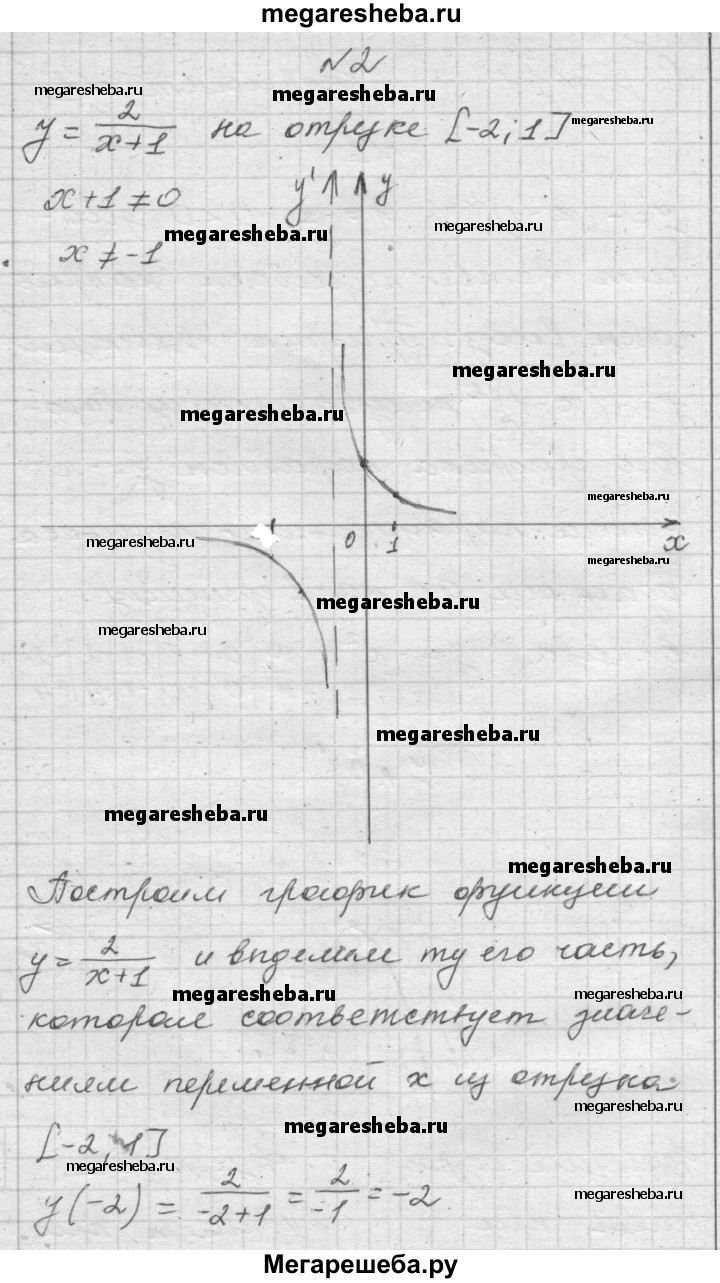 megaresheba.ru
№2
megaresheba.ru
megaresheba.ru
y = 2/(x+1) на отрезке [-2; 1]
megaresheba.ru
x+1 ≠ 0
y' y
megaresheba.ru
megaresheba.ru
x ≠ -1
megaresheba.ru
megaresheba.ru
megaresheba.ru
megaresheba.ru
0 1 x
megaresheba.ru
megaresheba.ru
megaresheba.ru
megaresheba.ru
megaresheba.ru
megaresheba.ru
Построим график функции
y = 2/(x+1) и выделим ту его часть,
megaresheba.ru
megaresheba.ru
которая соответствует значе-
ниям переменной x из отрезка
megaresheba.ru
megaresheba.ru
[-2; 1]
megaresheba.ru
y(-2) = 2/(-2+1) = 2/-1 = -2
megaresheba.ru
Мегарешеба.ру